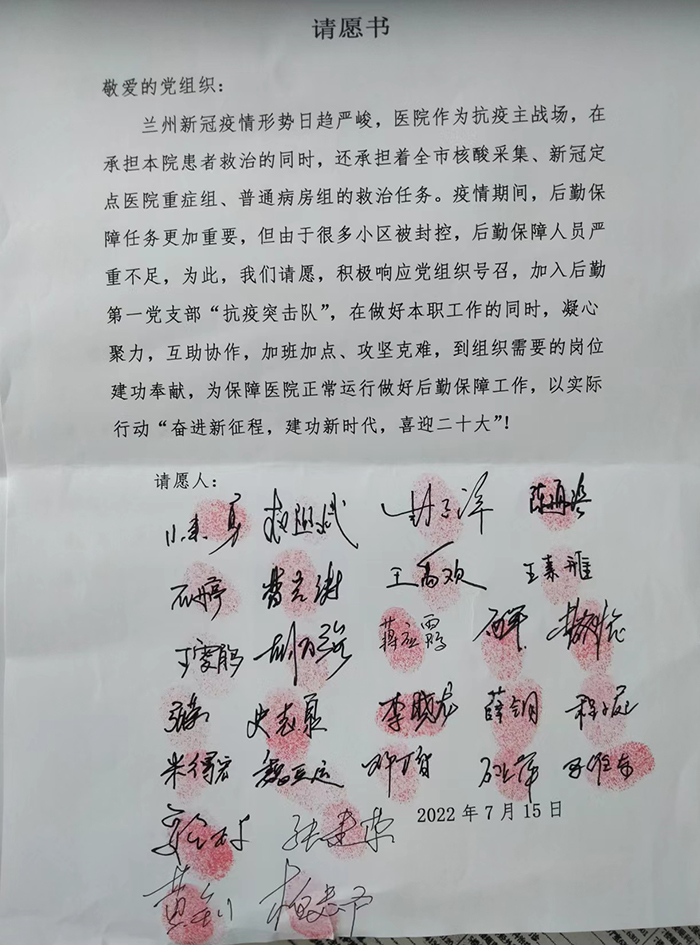 请愿书
敬爱的党组织：
兰州新冠疫情形势日趋严峻，医院作为抗疫主战场，在
承担本院患者救治的同时，还承担着全市核酸采集、新冠定
点医院重症组、普通病房组的救治任务。疫情期间，后勤保
障任务更加重要，但由于很多小区被封控，后勤保障人员严
重不足，为此，我们请愿，积极响应党组织号召，加入后勤
第一党支部“抗疫突击队”，在做好本职工作的同时，凝心
聚力，互助协作，加班加点、攻坚克难，到组织需要的岗位
建功奉献，为保障医院正常运行做好后勤保障工作，以实际
行动“奋进新征程，建功新时代，喜迎二十大”！
请愿人：
王高欢 王素雅
蒋应霞
史志夏 李晓龙 薛钥
朱得宏
2022年7月15日
张建荣